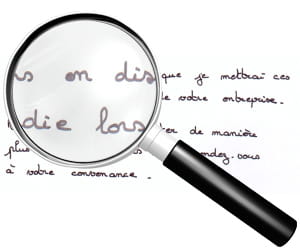 s on dis que je mettrai ces
votre entreprise.
die lors er de manière
plus ndez-vous
à votre convenance.